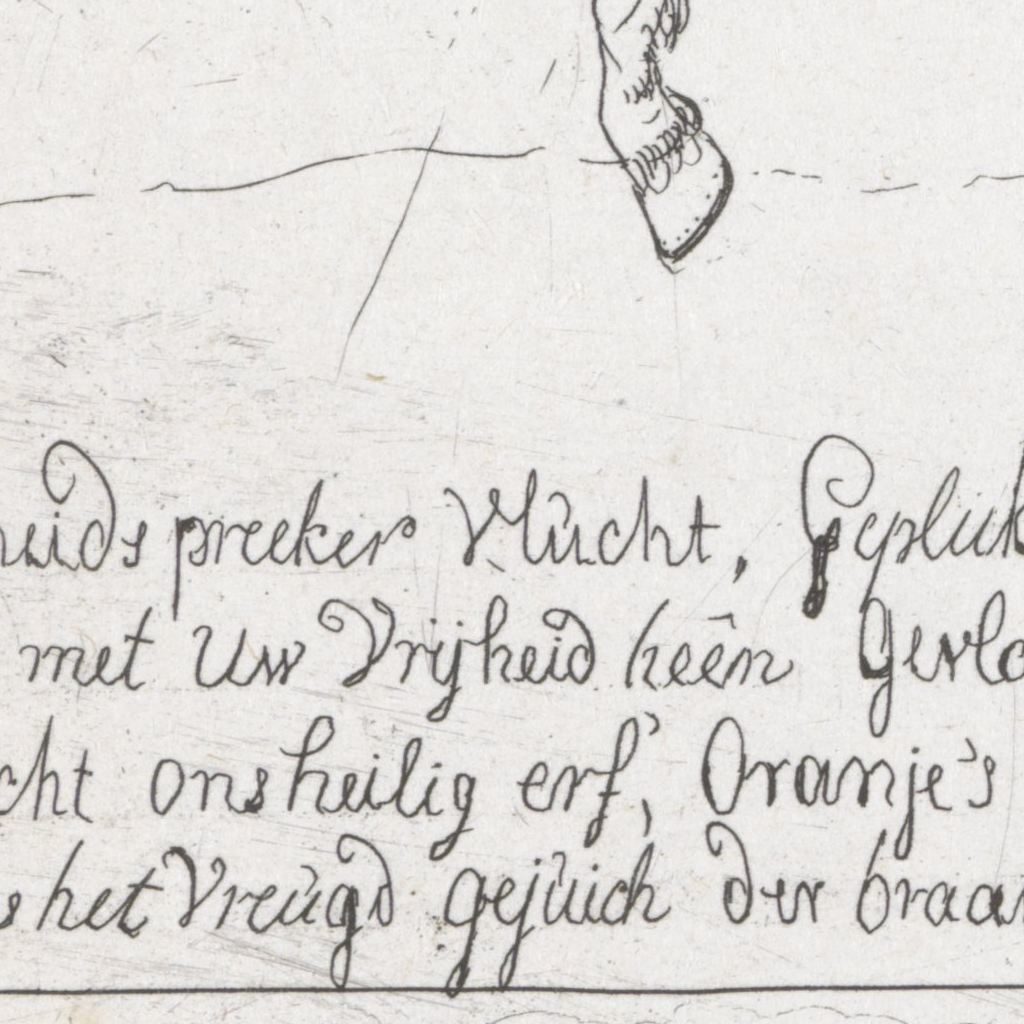 heids preeker Vlucht, Gepluk
met Uw Vrijheid heên gevlo
cht ons heilig erf, Oranje's
het Vreugd gejuich der braa